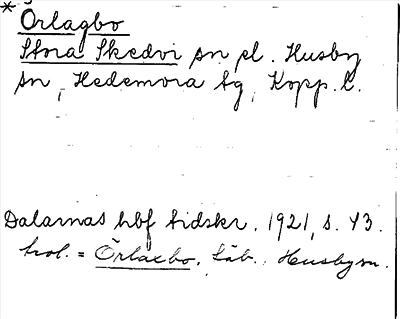 * Örlagbo
Stora Skedvi sn el. Husby
sn, Hedemora tg, Kopp. l.
Dalarnas hbf tidskr. 1921, s. 43.
trol. = Örlaxbo, Säb. Husby sn.